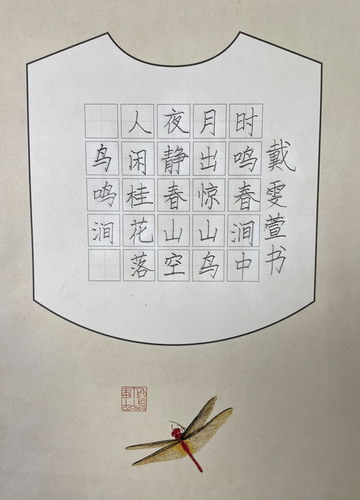 鸟鸣涧
人闲桂花落
夜静春山空
月出惊山鸟
时鸣春涧中
戴雯萱书